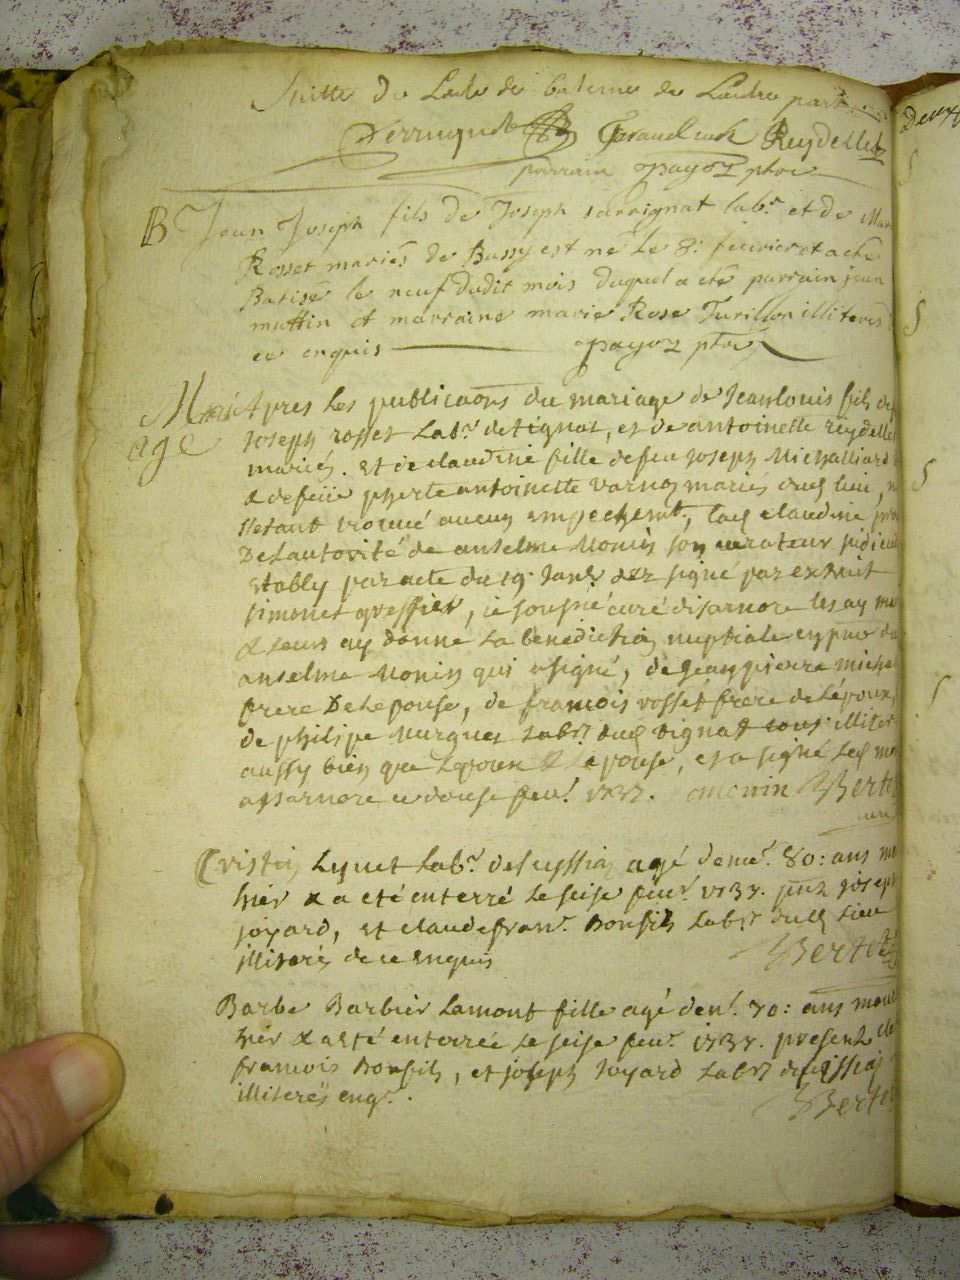 Suitte de Lacte de bateme de Lautre part
Perruquet Giraud curé Reydellet
parrain Payoz ptre
B Jean Joseph fils de Joseph sarrignat labr. et de Mar
Rosset mariés de Bussy est né le 8: feuvrier et a eté
Batisé le neuf dudit mois duquel a été parrain jean
muttin et marraine marie Rose Turillon illiterés
ce enquis Payoz ptre
Mari Apres les publicaons du mariage de Jean louis fils de
age Joseph rosset Labr. de tignat, et de antoinette reydellet
mariés. et de claudine fille de feu Joseph Michalliard
& de feüe pherte antoinette varnoz mariés dud lieu, n
sétant trouué aucun empechemt., lad claudine
De Lautorité de anselme Monin son curateur judici
Etably par acte du 19. Janr. signé par extrait
simonet greffier, ie soussné curé disarnore les ay ma
& leurs ay donné La benediction nuptiale en
anselme Monin qui a signé, de Jean pierre miche
frere De Lepouse, de francois rosset frere de Lépoux,
de philipe Murques Labr. dud tignat tous illiter
aussy bien que Lepoux & Lepouse, et a signé led mo
a isarnore ce douse feur. 1737. amonin Bertet
curé
Cristin Lynet Labr. de seyssia agé denr. 80: ans mo
hier & a eté enterré Le seise feur. 1737. pnz joseph
joyard, et claude franc. Bonfils Labr. dud Lieu
illiterés de ce enquis Bertet
Barbe Barbier Lamont fille agé denr. 70: ans mou
hier & a eté enterrée Le seise feur. 1737. present cla
francois Bonfils, et joseph Joyard Labr. de
illiterés enqs. Bertet